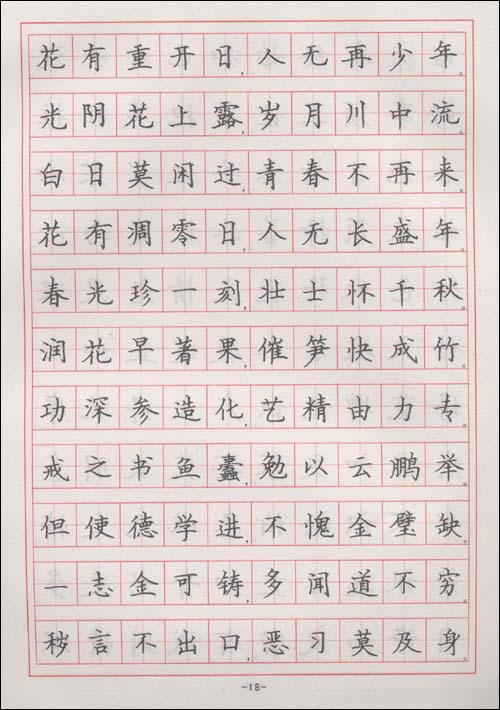 花有重开日,人无再少年。
光阴花上露,岁月川中流。
白日莫闲过,青春不再来。
花有凋零日,人无长盛年。
春光珍一刻,壮士怀千秋。
润花早著果,催笋快成竹。
功深参造化,艺精由力专。
戒之书鱼蠹,勉以云鹏举。
但使德学进,不愧金璧缺。
一志金可铸,多闻道不穷。
秽言不出口,恶习莫及身。
-18-